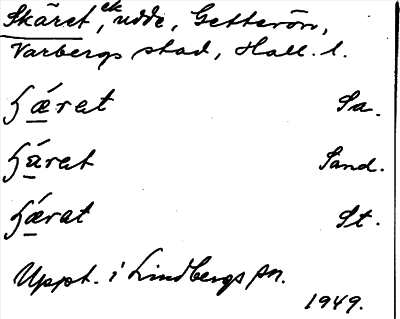 Skäret, ek. udde, Getterön,
Varbergs stad, Hall. l.
ʃǽrat Sa.
ʃárat Sand.
ʃǽrat St.
Uppt. i Lindbergs sn.
1949.